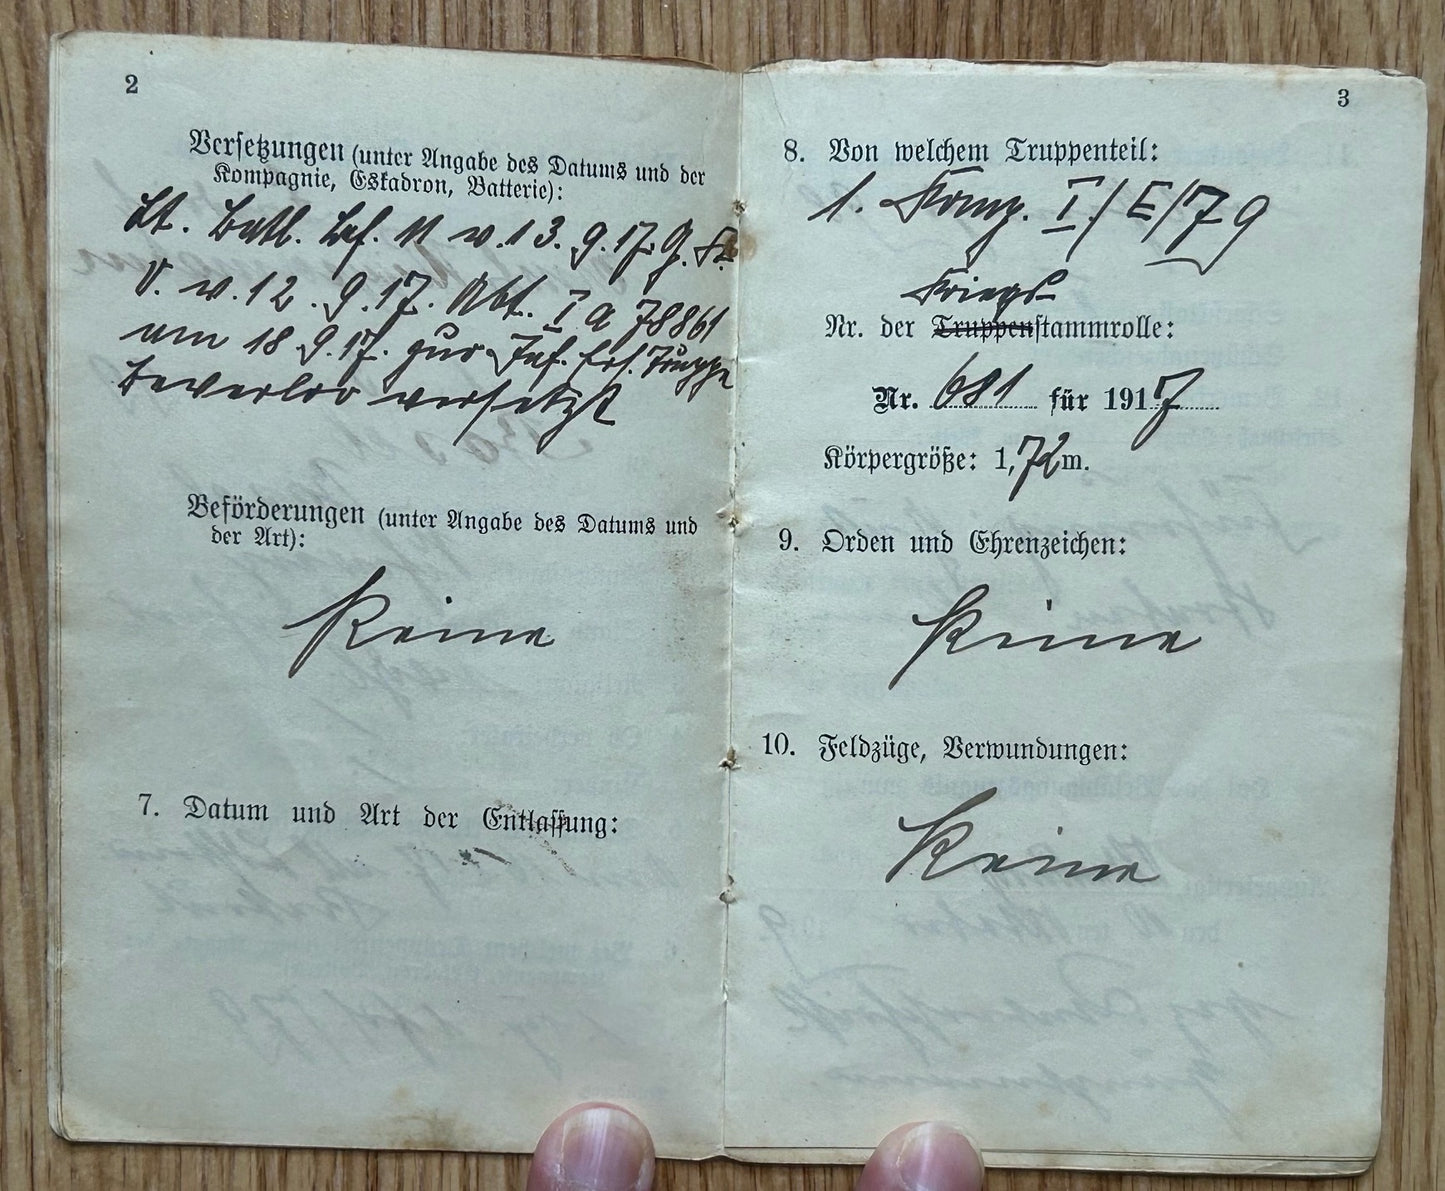 2
Versetzungen (unter Angabe des Datums und der
Kompagnie, Eskadron, Batterie):
Lt. Batl. Bef. 11 v. 13. 9. 17. G. K.
V. v. 12. 9. 17. Abt. I a 78861
am 18. 9. 17. zur Inf. Ers. Truppe
Beverloo versetzt
Beförderungen (unter Angabe des Datums und
der Art):
Keine
7. Datum und Art der Entlassung:
3
8. Von welchem Truppenteil:
1. Komp. I./E/79
Kriegs-
Nr. der Truppenstammrolle:
Nr. 681 für 1917
Körpergröße: 1,72 m.
9. Orden und Ehrenzeichen:
Keine
10. Feldzüge, Verwundungen:
Keine